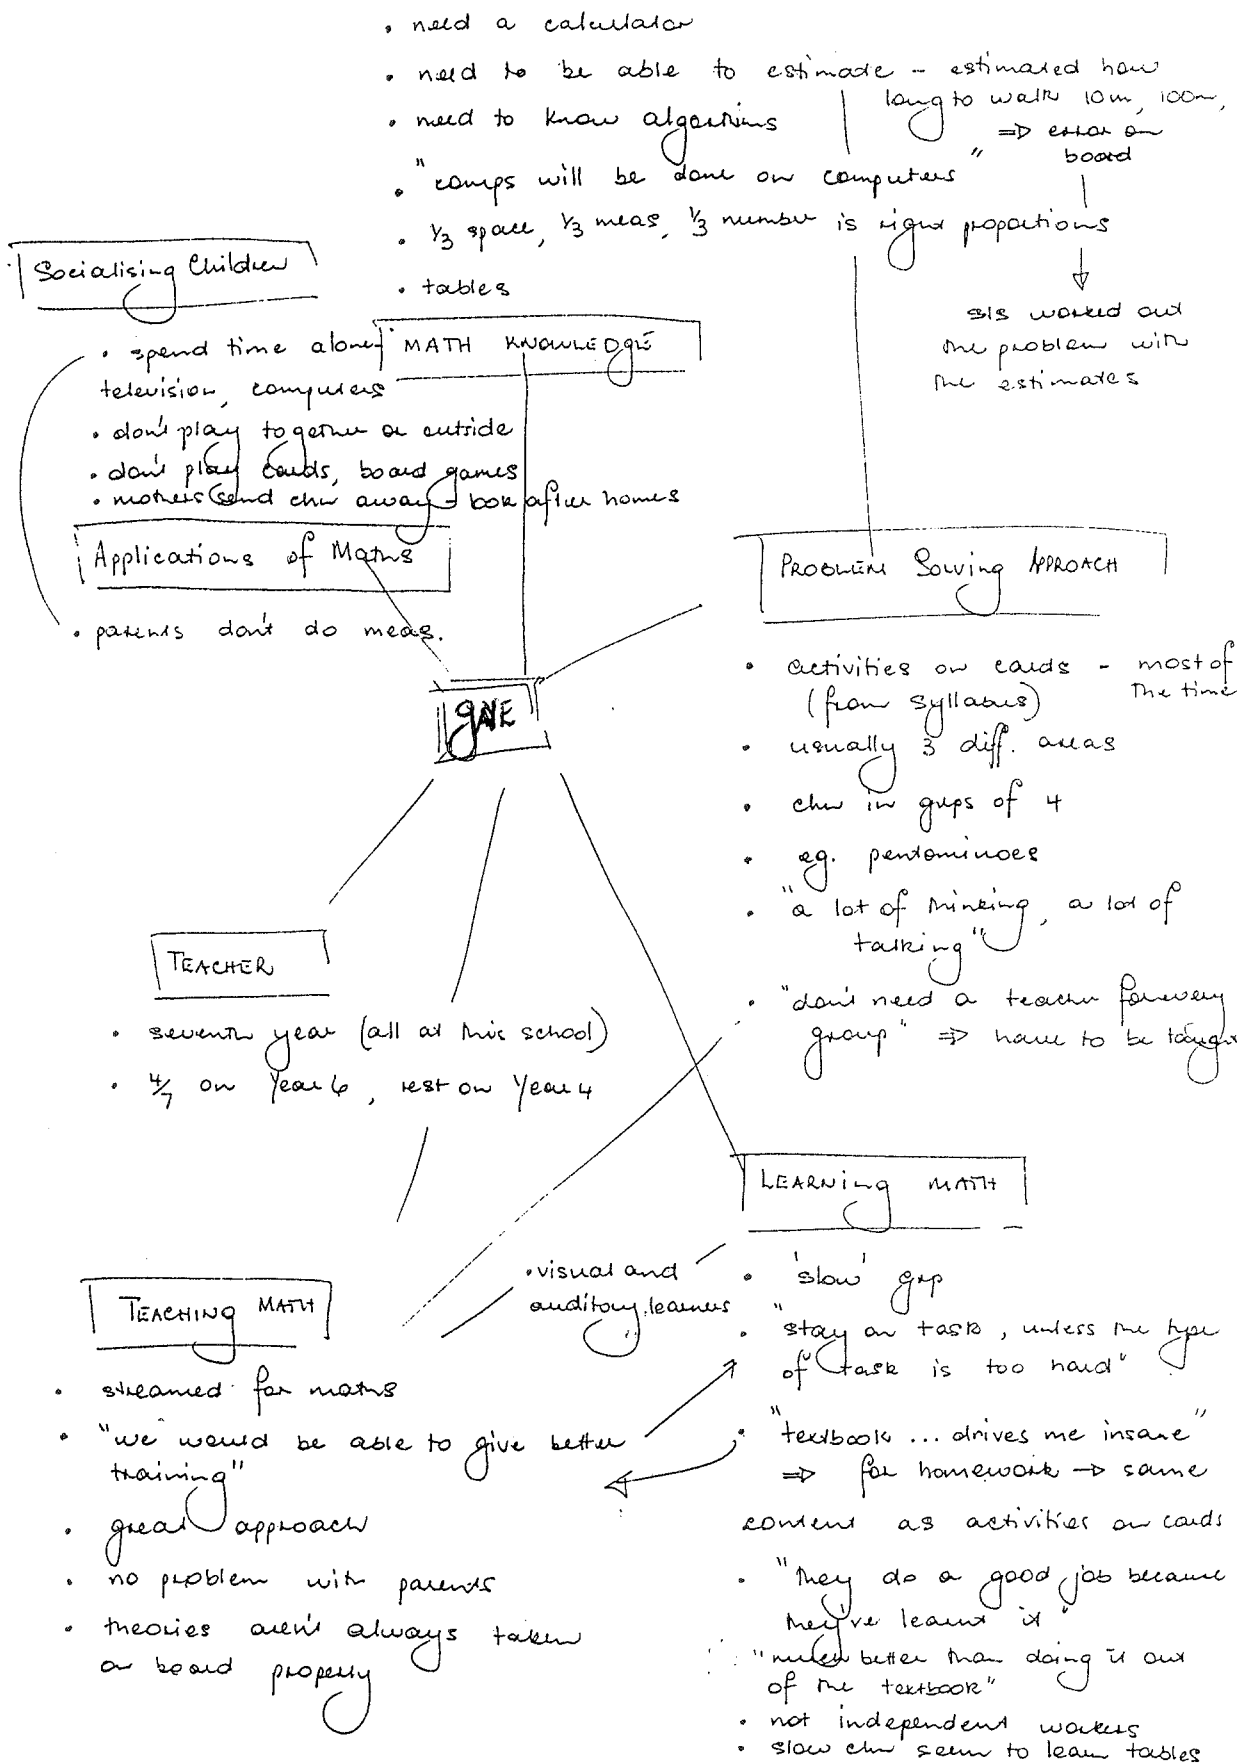 • need a calculator
• need to be able to estimate - estimated how
long to walk 10m, 100m,
⇒ error on
board
• need to know algorithms
• "comps will be done on computers"
• 1/3 space, 1/3 meas, 1/3 number is right proportions
• tables
s/s worked out
the problem with
the estimates
Socialising Children
MATH KNOWLEDGE
• spend time alone
television, computers
• don't play together or outside
• don't play cards, board games
• mothers send chn away - look after homes
Applications of Maths
• parents don't do meas.
PROBLEM Solving APPROACH
• activities on cards - most of
the time
(from syllabus)
• usually 3 diff. areas
• chn in grps of 4
• eg. pentominoes
• "a lot of thinking, a lot of
talking"
• "don't need a teacher for every
group" ⇒ have to be taught
TEACHER
• seventh year (all at this school)
• 4/7 on Year 6, rest on Year 4
LEARNing MATH
• visual and
auditory learners
• 'slow' grp
• "stay on task, unless the type
of task is too hard"
• "textbook ... drives me insane"
⇒ for homework → same
content as activities on cards
• "they do a good job because
they've learnt it"
"much better than doing it out
of the textbook"
• not independent workers
• slow chn seem to learn tables
TEACHING MATH
• streamed for maths
• "we would be able to give better
training"
• great approach
• no problem with parents
• theories aren't always taken
on board properly